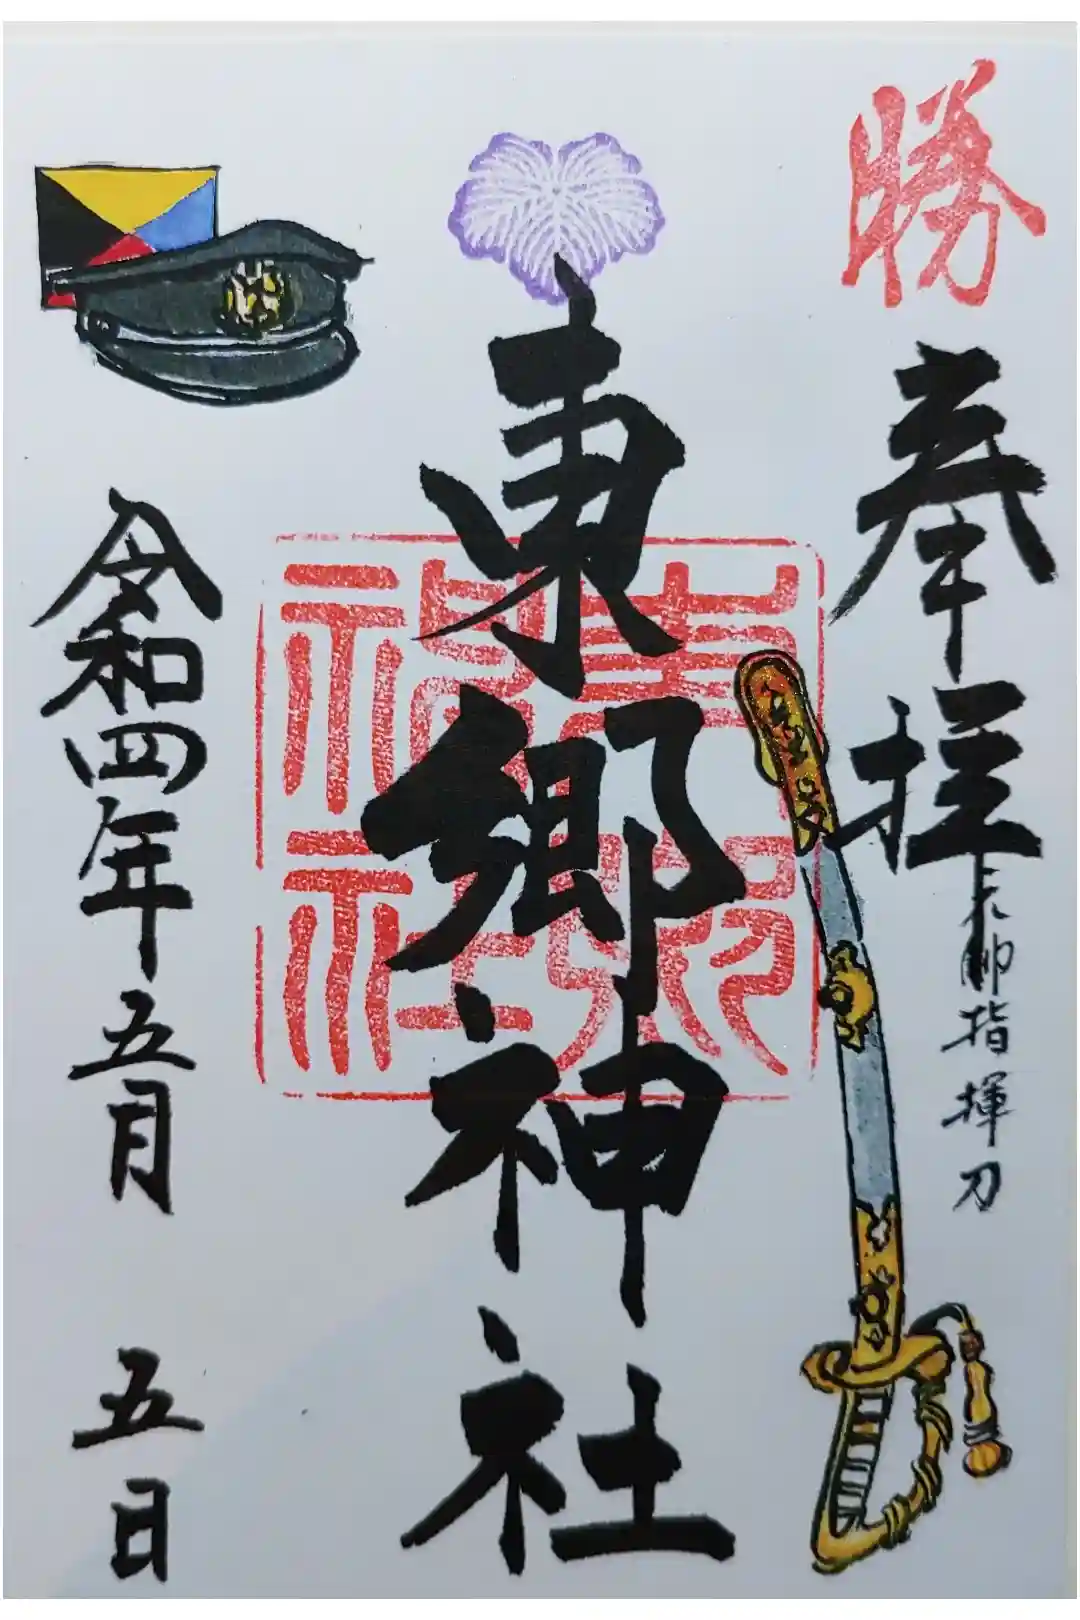 勝
奉拝
元帥指揮刀
東郷神社
東郷
神社
令和四年五月五日